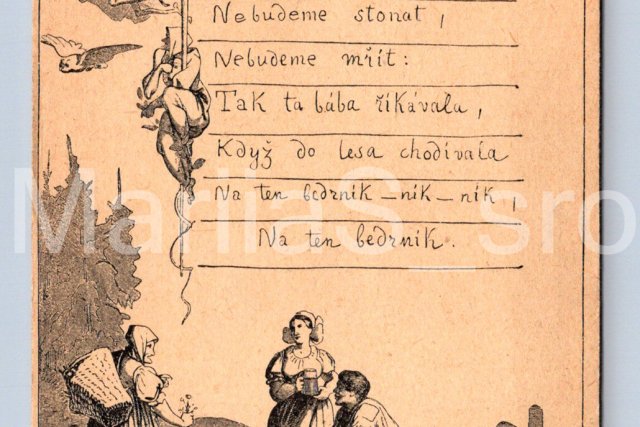 Nebudeme stonat,
Nebudeme mřít:
Tak ta bába říkávala,
Když do lesa chodívala
Na ten bedrník – ník – ník,
Na ten bedrník.
MarijaS_sro